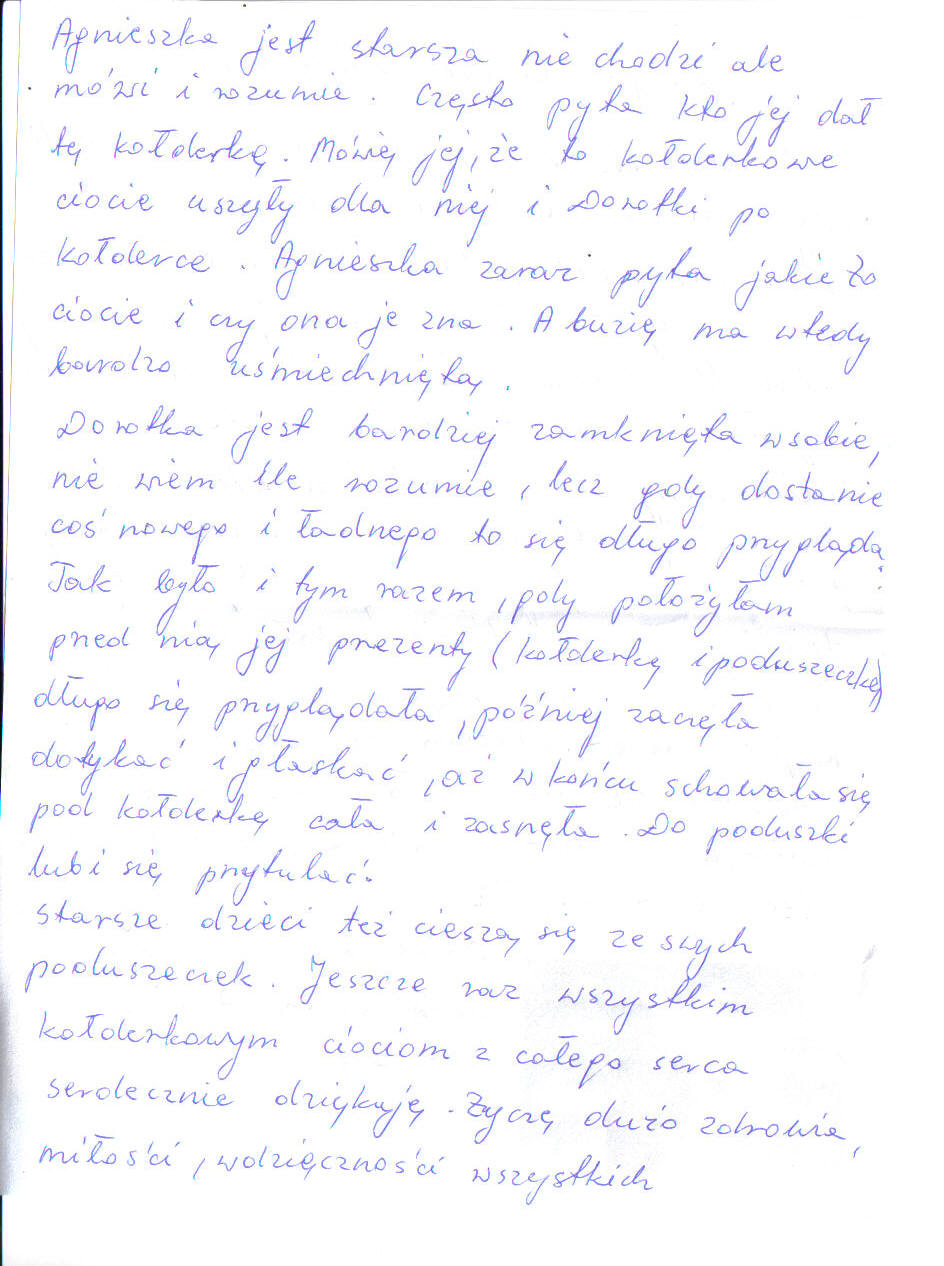 Agnieszka jest starsza nie chodzi ale
mówi i rozumie. Często pyta kto jej dał
tę kołderkę. Mówię jej, że to kołderkowe
ciocie uszyły dla niej i Dorotki po
kołderce. Agnieszka zaraz pyta jakie to
ciocie i czy ona je zna. A buzię ma wtedy
bardzo uśmiechniętą.
Dorotka jest bardziej zamknięta w sobie,
nie wiem ile rozumie, lecz gdy dostanie
coś nowego i ładnego to się długo przygląda.
Tak było i tym razem, gdy położyłam
przed nią jej prezenty (kołderkę i poduszeczkę)
długo się przyglądała, później zaczęła
dotykać i głaskać, aż w końcu schowała się
pod kołderkę cała i zasnęła. Do poduszki
lubi się przytulać.
Starsze dzieci też cieszą się ze swych
poduszeczek. Jeszcze raz wszystkim
kołderkowym ciociom z całego serca
serdecznie dziękuję. Życzę dużo zdrowia,
miłości, wdzięczności wszystkich